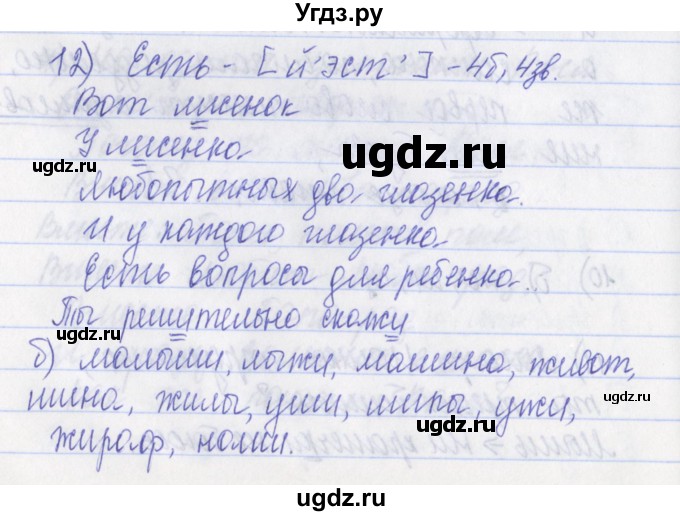 Угдз.ру
12) Есть - [й'эст'] - 4б, 4зв.
Вот лисенок
У лисенка
Любопытных два глазенка.
И у каждого глазенка
Есть вопросы для ребенка.
Ты решительно скажи
б) малыши, лыжи, машина, живот,
шина, жилы, уши, шипы, ужи,
жираф,
ugdz.ru
ugdz.ru
ugdz.ru
ugdz.ru